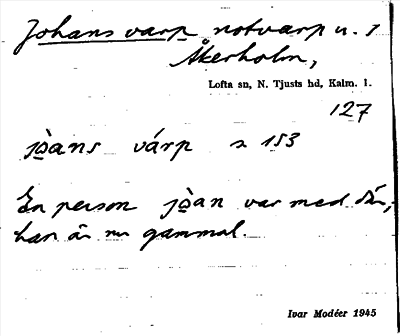 Johans varp notvarp u. 1
Åkerholm,
Lofta sn, N. Tjusts hd, Kalm. l.
127
jo̱ans várp s 153
En person jo̱an var med där,
han är nu gammal.
Ivar Modéer 1945